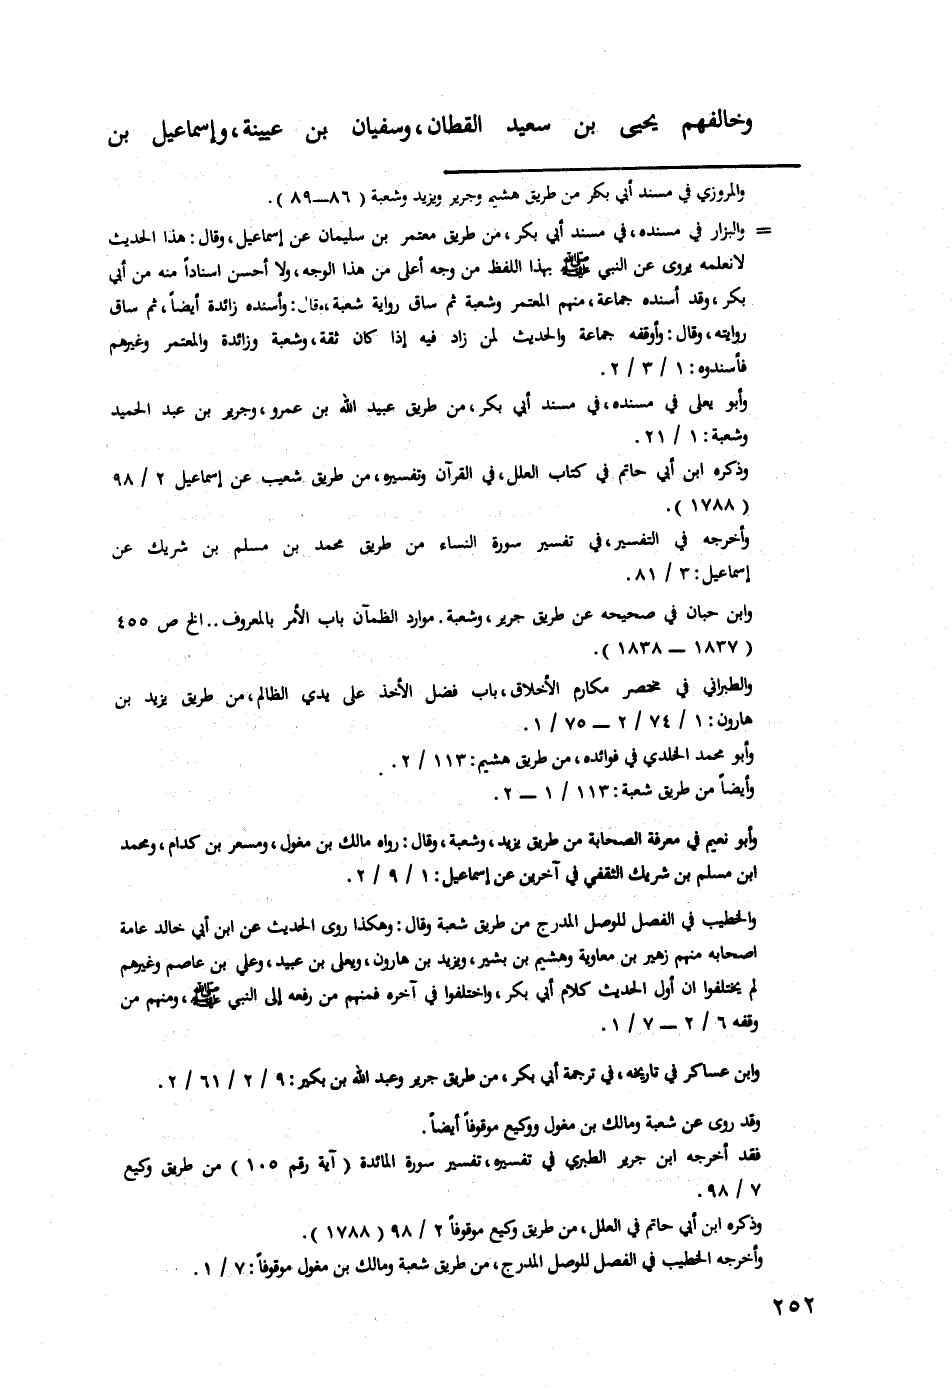 وخالفهم يحيى بن سعيد القطان، وسفيان بن عيينة، وإسماعيل بن
والمروزي في مسند أبي بكر من طريق هشيم وجرير ويزيد وشعبة ( ٨٦—٨٩ ).
= والبزار في مسنده، في مسند أبي بكر، من طريق معتمر بن سليمان عن إسماعيل، وقال: هذا الحديث
لانعلمه يروى عن النبي ﷺ بهذا اللفظ من وجه أعلى من هذا الوجه، ولا أحسن اسناداً منه من أبي
بكر، وقد أسنده جماعة، منهم المعتمر وشعبة ثم ساق رواية شعبة، وقال: وأسنده زائدة أيضاً، ثم ساق
روايته، وقال: وأوقفه جماعة والحديث لمن زاد فيه إذا كان ثقة، وشعبة وزائدة والمعتمر وغيرهم
فأسندوه: ١ / ٣ / ٢.
وأبو يعلى في مسنده، في مسند أبي بكر، من طريق عبيد الله بن عمرو، وجرير بن عبد الحميد
وشعبة: ١ / ٢١.
وذكره ابن أبي حاتم في كتاب العلل، في القرآن وتفسيره، من طريق شعيب عن إسماعيل ٢ / ٩٨
( ١٧٨٨ ).
وأخرجه في التفسير، في تفسير سورة النساء من طريق محمد بن مسلم بن شريك عن
إسماعيل: ٣ / ٨١.
وابن حبان في صحيحه عن طريق جرير، وشعبة. موارد الظمآن باب الأمر بالمعروف.. الخ ص ٤٥٥
( ١٨٣٧ — ١٨٣٨ ).
والطبراني في مختصر مكارم الأخلاق، باب فضل الأخذ على يدي الظالم، من طريق يزيد بن
هارون: ١ / ٧٤ / ٢ — ٧٥ / ١.
وأبو محمد الخلدي في فوائده، من طريق هشيم: ١١٣ / ٢.
وأيضاً من طريق شعبة: ١١٣ / ١ — ٢.
وأبو نعيم في معرفة الصحابة من طريق يزيد، وشعبة، وقال: رواه مالك بن مغول، ومسعر بن كدام، ومحمد
ابن مسلم بن شريك الثقفي في آخرين عن إسماعيل: ١ / ٩ / ٢.
والخطيب في الفصل للوصل المدرج من طريق شعبة وقال: وهكذا روى الحديث عن ابن أبي خالد عامة
اصحابه منهم زهير بن معاوية وهشيم بن بشير، ويزيد بن هارون، ويعلى بن عبيد، وعلي بن عاصم وغيرهم
لم يختلفوا ان أول الحديث كلام أبي بكر، واختلفوا في آخره فمنهم من رفعه إلى النبي ﷺ، ومنهم من
وقفه ٦ / ٢ — ٧ / ١.
وابن عساكر في تاريخه، في ترجمة أبي بكر، من طريق جرير وعبد الله بن بكير: ٩ / ٢ / ٦١ / ٢.
وقد روى عن شعبة ومالك بن مغول ووكيع موقوفاً أيضاً.
فقد أخرجه ابن جرير الطبري في تفسيره، تفسير سورة المائدة ( آية رقم ١٠٥ ) من طريق وكيع
٧ / ٩٨.
وذكره ابن أبي حاتم في العلل، من طريق وكيع موقوفاً ٢ / ٩٨ ( ١٧٨٨ ).
وأخرجه الخطيب في الفصل للوصل المدرج، من طريق شعبة ومالك بن مغول موقوفاً: ٧ / ١.
٢٥٢